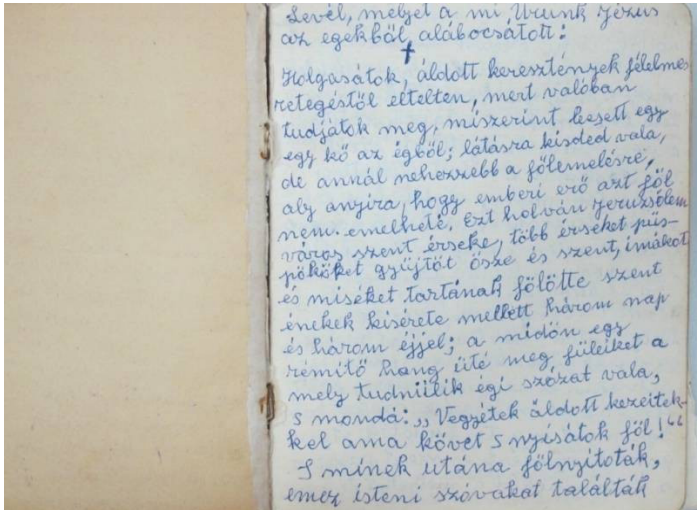 Levél, melyet a mi, Urunk Jézus
az egekből alábocsátott:
†
Holgasátok, áldott keresztények félelmes
retegéstől eltelten, mert valóban
tudjátok meg, miszerint leesett egy
egy kő az égből; látásra kisded vala,
de annál nehezzebb a fölemelésre,
aly anyira, hogy emberi erő azt föl
nem emelheté. Ezt holván Jeruzsólem
város szent érseke, több érseket püs-
pököket gyüjtöt ősze és szent, imákat
és miséket tartának fölötte szent
énekek kisérete mellett három nap
és három éjjel; a midön egy
rémítő hang üté meg füleiket a
mely tudniilik égi szózat vala,
s mondá: „Vegyétek áldott kezeitek-
kel ama követ s nyisátok föl!"
S minek utána fölnyitoták,
emez isteni szóvakat találták